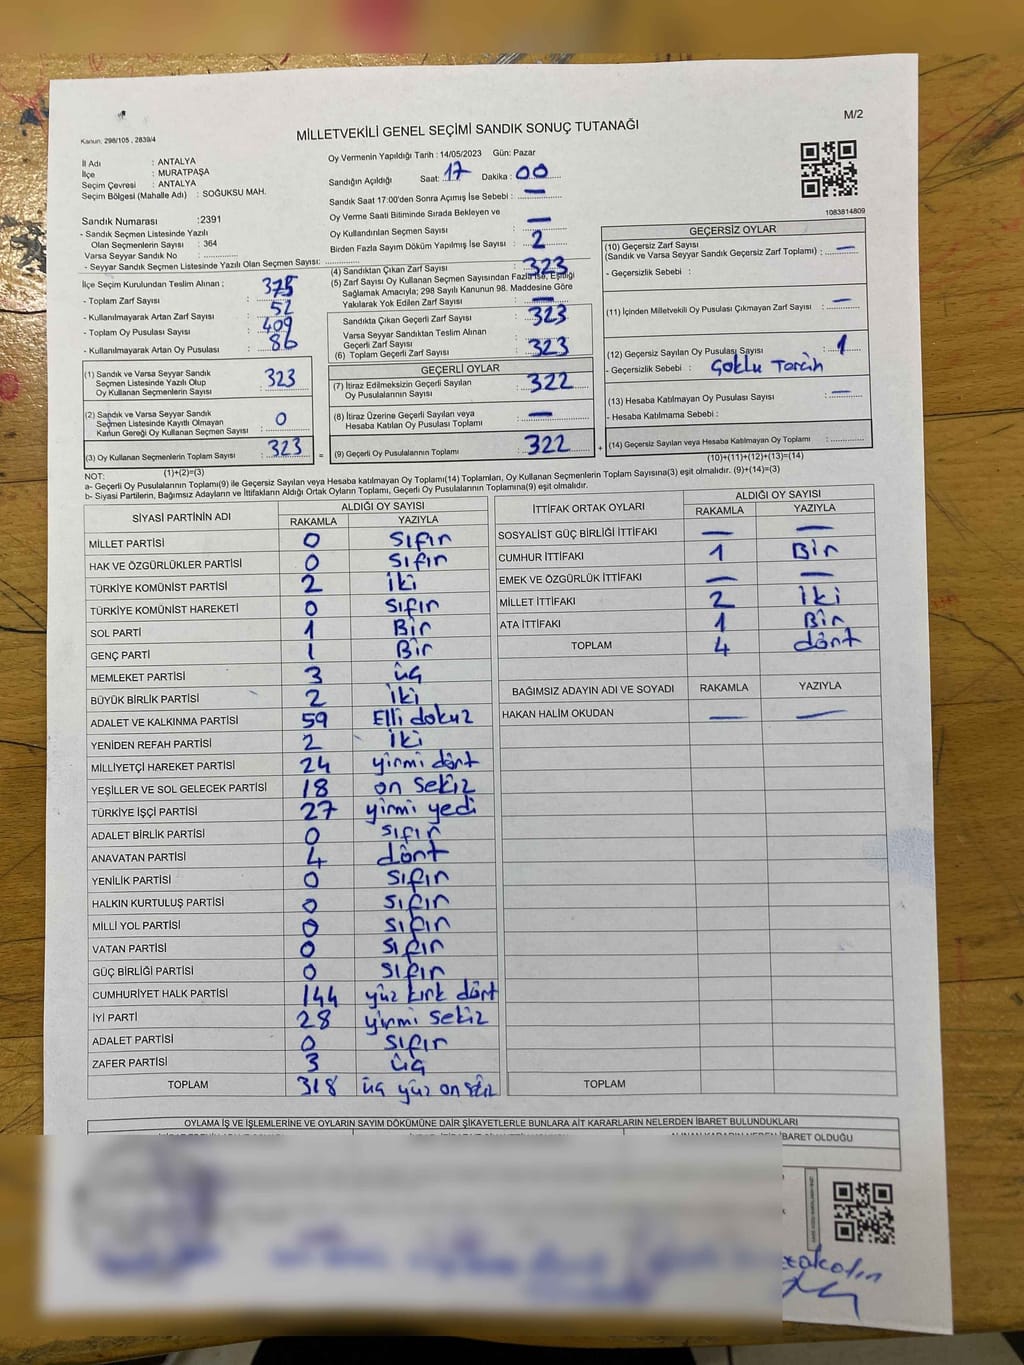 M/2
Kanun, 298/105 , 2839/4
MİLLETVEKİLİ GENEL SEÇİMİ SANDIK SONUÇ TUTANAĞI
İl Adı : ANTALYA
İlçe : MURATPAŞA
Seçim Çevresi : ANTALYA
Seçim Bölgesi (Mahalle Adı) : SOĞUKSU MAH.
Oy Vermenin Yapıldığı Tarih : 14/05/2023 Gün: Pazar
Sandığın Açıldığı Saat: 17 Dakika : 00
Sandık Saat 17:00'den Sonra Açımış İse Sebebi : —
Oy Verme Saati Bitiminde Sırada Bekleyen ve
Oy Kullandırılan Seçmen Sayısı : —
Birden Fazla Sayım Döküm Yapılmış İse Sayısı : 2
1083814809
Sandık Numarası :2391
- Sandık Seçmen Listesinde Yazılı
Olan Seçmenlerin Sayısı : 364
Varsa Seyyar Sandık No :
- Seyyar Sandık Seçmen Listesinde Yazılı Olan Seçmen Sayısı:
İlçe Seçim Kurulundan Teslim Alınan ;
- Toplam Zarf Sayısı : 375
- Kullanılmayarak Artan Zarf Sayısı : 52
- Toplam Oy Pusulası Sayısı : 409
- Kullanılmayarak Artan Oy Pusulası : 86
(1) Sandık ve Varsa Seyyar Sandık
Seçmen Listesinde Yazılı Olup
Oy Kullanan Seçmenlerin Sayısı : 323
(2) Sandık ve Varsa Seyyar Sandık
Seçmen Listesinde Kayıtlı Olmayan
Kanun Gereği Oy Kullanan Seçmen Sayısı : 0
(3) Oy Kullanan Seçmenlerin Toplam Sayısı : 323
(1)+(2)=(3)
(4) Sandıktan Çıkan Zarf Sayısı : 323
(5) Zarf Sayısı Oy Kullanan Seçmen Sayısından Fazla İse, Eşitliği
Sağlamak Amacıyla; 298 Sayılı Kanunun 98. Maddesine Göre
Yakılarak Yok Edilen Zarf Sayısı : —
Sandıkta Çıkan Geçerli Zarf Sayısı : 323
Varsa Seyyar Sandıktan Teslim Alınan
Geçerli Zarf Sayısı :
(6) Toplam Geçerli Zarf Sayısı : 323
GEÇERLİ OYLAR
(7) İtiraz Edilmeksizin Geçerli Sayılan
Oy Pusulasının Sayısı : 322
(8) İtiraz Üzerine Geçerli Sayılan veya
Hesaba Katılan Oy Pusulası Toplamı : —
= (9) Geçerli Oy Pusulalarının Toplamı : 322 +
GEÇERSİZ OYLAR
(10) Geçersiz Zarf Sayısı
(Sandık ve Varsa Seyyar Sandık Geçersiz Zarf Toplamı) : —
- Geçersizlik Sebebi :
(11) İçinden Milletvekili Oy Pusulası Çıkmayan Zarf Sayısı : —
(12) Geçersiz Sayılan Oy Pusulası Sayısı : 1
- Geçersizlik Sebebi : Çoklu Tercih
(13) Hesaba Katılmayan Oy Pusulası Sayısı : —
- Hesaba Katılmama Sebebi :
(14) Geçersiz Sayılan veya Hesaba Katılmayan Oy Toplamı :
(10)+(11)+(12)+(13)=(14)
NOT:
a- Geçerli Oy Pusulalarının Toplamı(9) ile Geçersiz Sayılan veya Hesaba katılmayan Oy Toplamı(14) Toplamları, Oy Kullanan Seçmenlerin Toplam Sayısına(3) eşit olmalıdır. (9)+(14)=(3)
b- Siyasi Partilerin, Bağımsız Adayların ve İttifakların Aldığı Ortak Oyların Toplamı, Geçerli Oy Pusulalarının Toplamına(9) eşit olmalıdır.
SİYASİ PARTİNİN ADI ALDIĞI OY SAYISI
RAKAMLA YAZIYLA
MİLLET PARTİSİ 0 Sıfır
HAK VE ÖZGÜRLÜKLER PARTİSİ 0 Sıfır
TÜRKİYE KOMÜNİST PARTİSİ 2 İki
TÜRKİYE KOMÜNİST HAREKETİ 0 Sıfır
SOL PARTİ 1 Bir
GENÇ PARTİ 1 Bir
MEMLEKET PARTİSİ 3 üç
BÜYÜK BİRLİK PARTİSİ 2 İki
ADALET VE KALKINMA PARTİSİ 59 Elli dokuz
YENİDEN REFAH PARTİSİ 2 İki
MİLLİYETÇİ HAREKET PARTİSİ 24 yirmi dört
YEŞİLLER VE SOL GELECEK PARTİSİ 18 on sekiz
TÜRKİYE İŞÇİ PARTİSİ 27 yirmi yedi
ADALET BİRLİK PARTİSİ 0 Sıfır
ANAVATAN PARTİSİ 4 dört
YENİLİK PARTİSİ 0 Sıfır
HALKIN KURTULUŞ PARTİSİ 0 Sıfır
MİLLİ YOL PARTİSİ 0 Sıfır
VATAN PARTİSİ 0 Sıfır
GÜÇ BİRLİĞİ PARTİSİ 0 Sıfır
CUMHURİYET HALK PARTİSİ 144 yüz kırk dört
İYİ PARTİ 28 yirmi sekiz
ADALET PARTİSİ 0 Sıfır
ZAFER PARTİSİ 3 üç
TOPLAM 318 üç yüz on sekiz
İTTİFAK ORTAK OYLARI ALDIĞI OY SAYISI
RAKAMLA YAZIYLA
SOSYALİST GÜÇ BİRLİĞİ İTTİFAKI — —
CUMHUR İTTİFAKI 1 Bir
EMEK VE ÖZGÜRLÜK İTTİFAKI — —
MİLLET İTTİFAKI 2 İki
ATA İTTİFAKI 1 Bir
TOPLAM 4 dört
BAĞIMSIZ ADAYIN ADI VE SOYADI RAKAMLA YAZIYLA
HAKAN HALİM OKUDAN — —
TOPLAM
OYLAMA İŞ VE İŞLEMLERİNE VE OYLARIN SAYIM DÖKÜMÜNE DAİR ŞİKAYETLERLE BUNLARA AİT KARARLARIN NELERDEN İBARET BULUNDUKLARI
İBARET OLDUĞU